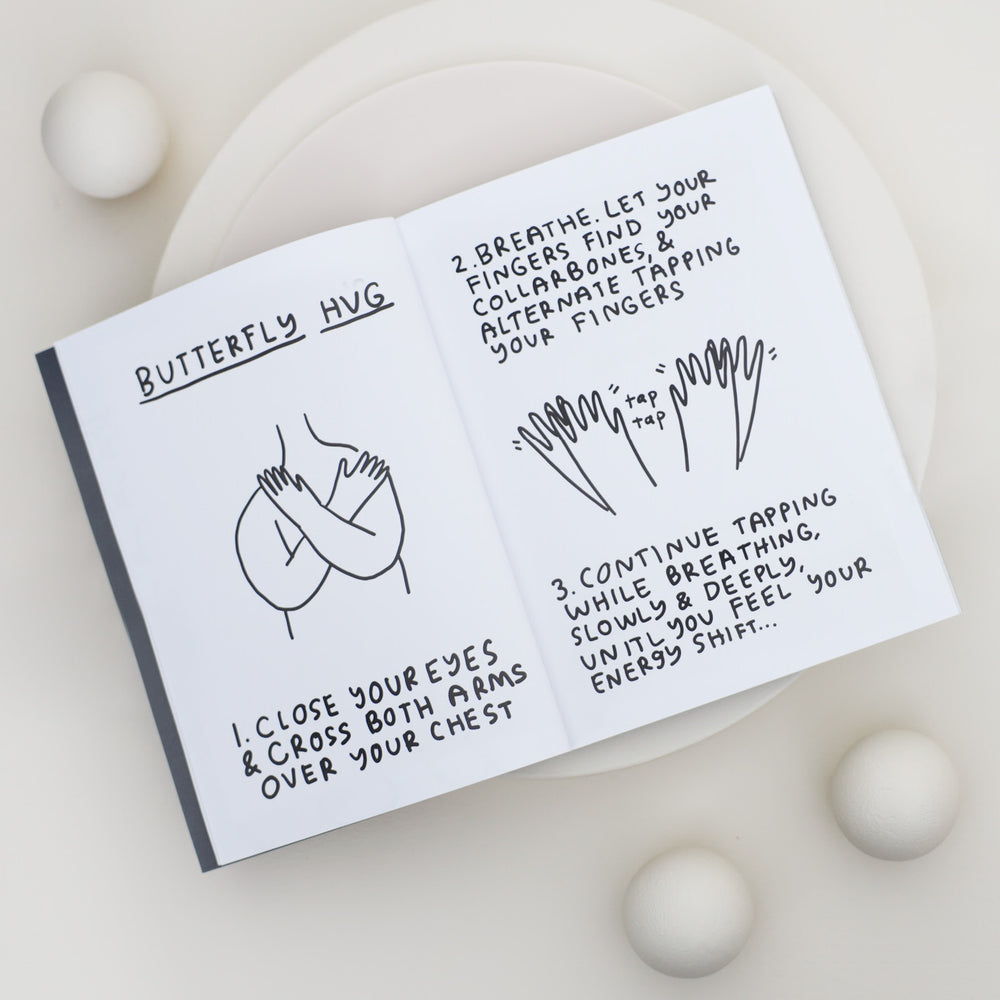 BUTTERFLY HUG
1. CLOSE YOUR EYES
& CROSS BOTH ARMS
OVER YOUR CHEST
2. BREATHE. LET YOUR
FINGERS FIND YOUR
COLLARBONES, &
ALTERNATE TAPPING
YOUR FINGERS
tap
tap
3. CONTINUE TAPPING
WHILE BREATHING,
SLOWLY & DEEPLY,
UNITL YOU FEEL YOUR
ENERGY SHIFT...